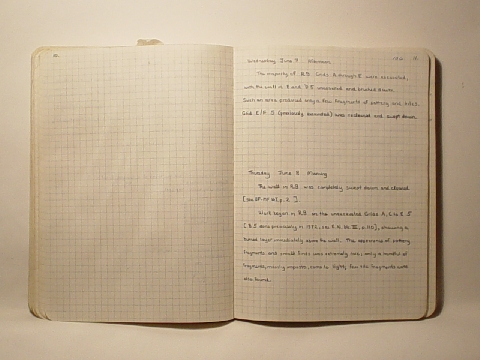 Wednesday June 7 Afternoon
The majority of B.9 Grids A through E were excavated,
with the wall in and B.5 unexcavated and brushed down.
Such an area produced only a few fragments of pottery and tiles.
Grid E/F 5 (previously excavated) was recleaned and swept down.
Thursday June 8 Morning
The wall in B.9 was completely swept down and cleaned
[see p. 2].
Work began in B.9 on the unexcavated Grids A, C to E 5
[B.5 done previously in 1972, see p. 110], showing a
burned layer immediately above the wall. The appearance of pottery
fragments and small finds was extremely rare, only a handful of
fragments, mainly impasto, came to light; few tile fragments were
also found.